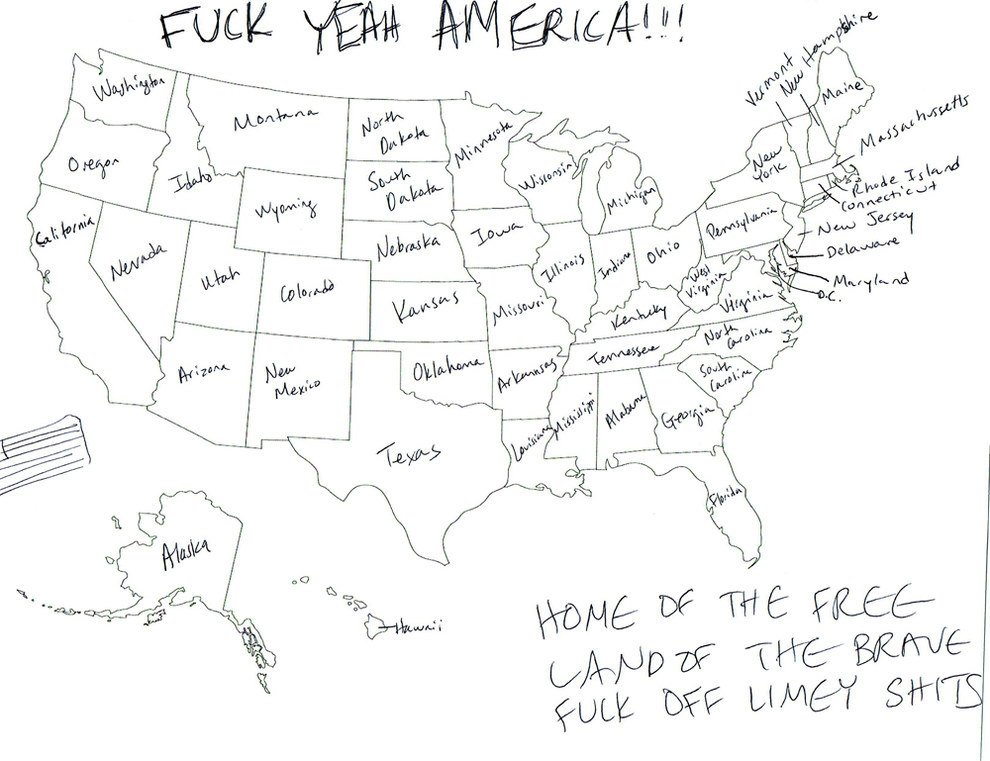 FUCK YEAH AMERICA!!!
Washington
Montana
North
Dakota
Minnesota
Vermont
New Hampshire
Maine
Massachussetts
Oregon
Idaho
South
Dakota
Wisconsin
Michigan
New
York
Rhode Island
Connecticut
Wyoming
California
Nevada
Utah
Colorado
Nebraska
Iowa
Illinois
Indiana
Ohio
Pennsylvania
New Jersey
Delaware
Maryland
D.C.
West
Virginia
Virginia
Kansas
Missouri
Kentucky
North
Carolina
Tennessee
South
Carolina
Arizona
New
Mexico
Oklahoma
Arkansas
Texas
Louisiana
Mississippi
Alabama
Georgia
Florida
Alaska
Hawaii
HOME OF THE FREE
LAND OF THE BRAVE
FUCK OFF LIMEY SHITS